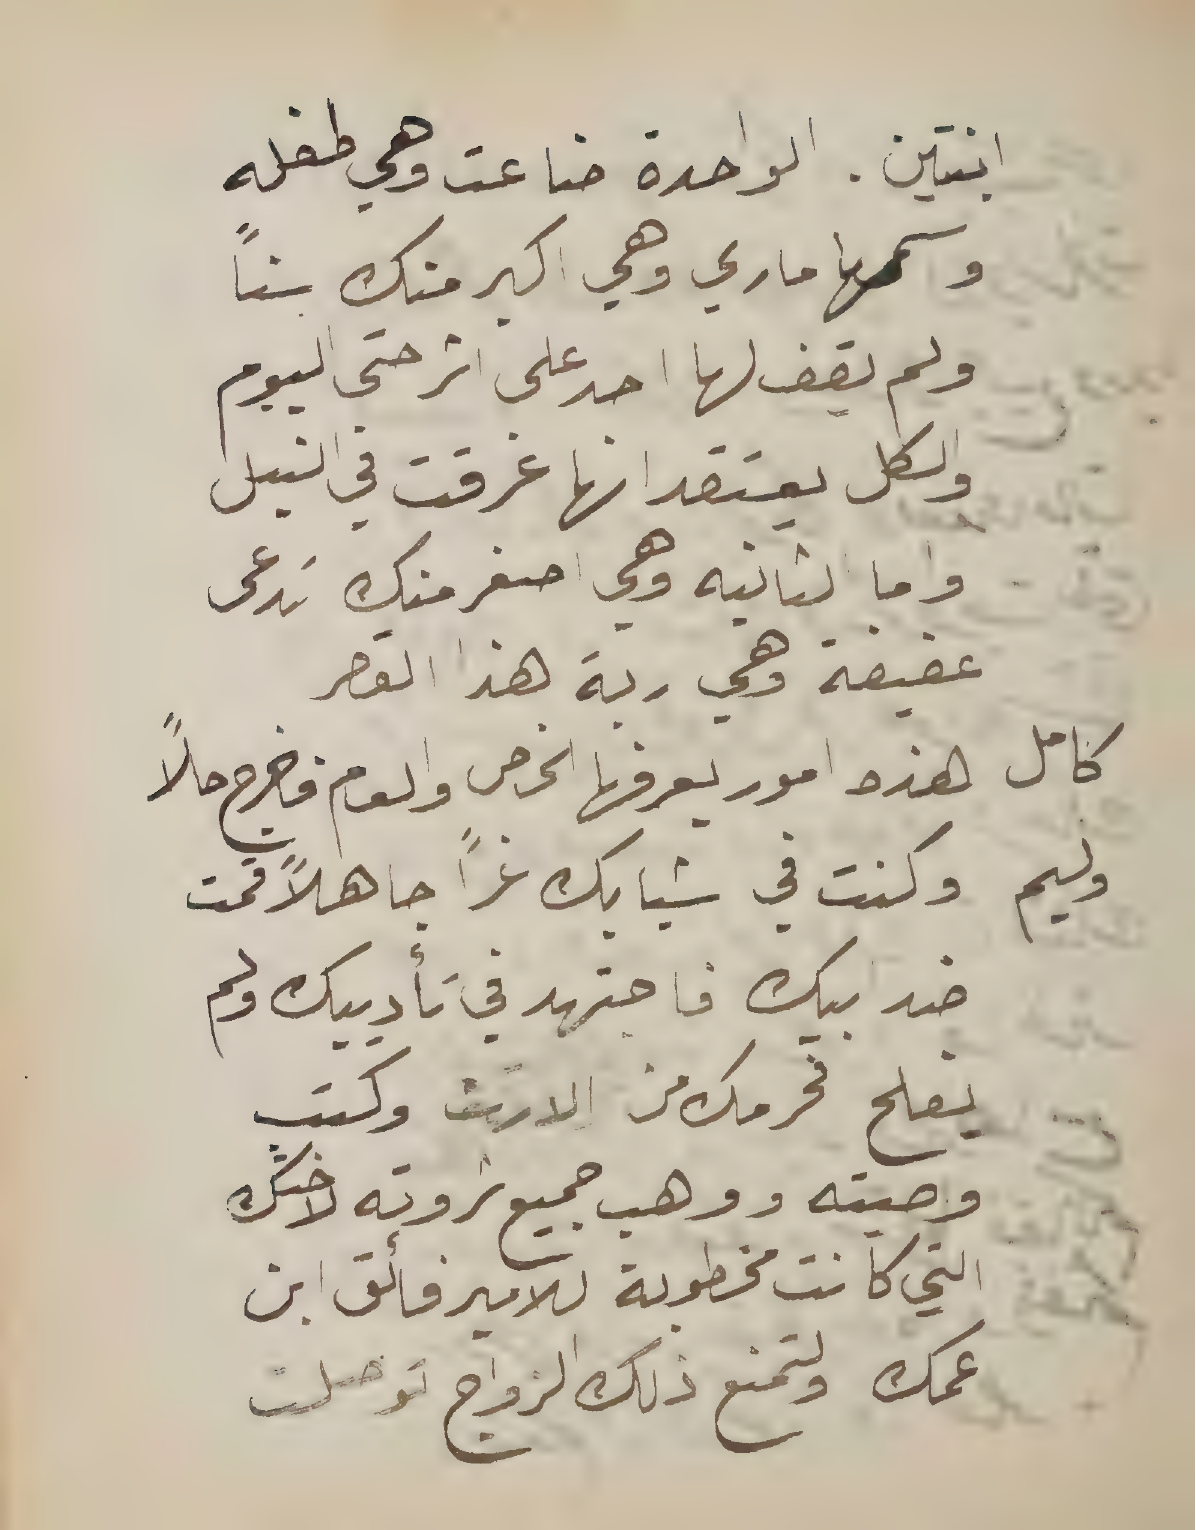 ابنتين . الواحدة ضاعت وهي طفله
واسمها ماري وهي اكبر منك سناً
ولم يقف لها احد على اثر حتى اليوم
والكل يعتقد انها غرقت في النيل
واما الثانيه وهي اصغر منك تدعى
عفيفة وهي ربة هذا القصر
كامل هذه امور يعرفها الخاص والعام فاخرج حالاً
وليم وكنت في شبابك غراً جاهلاً قمت
ضد ابيك فاجتهد في تأديبك ولم
يفلح فحرمك من الارث وكتب
وصيته ووهب جميع ثروته لاختك
التي كانت مخطوبة للامير فائق ابن
عمك ولتمنع ذلك الزواج توصلت